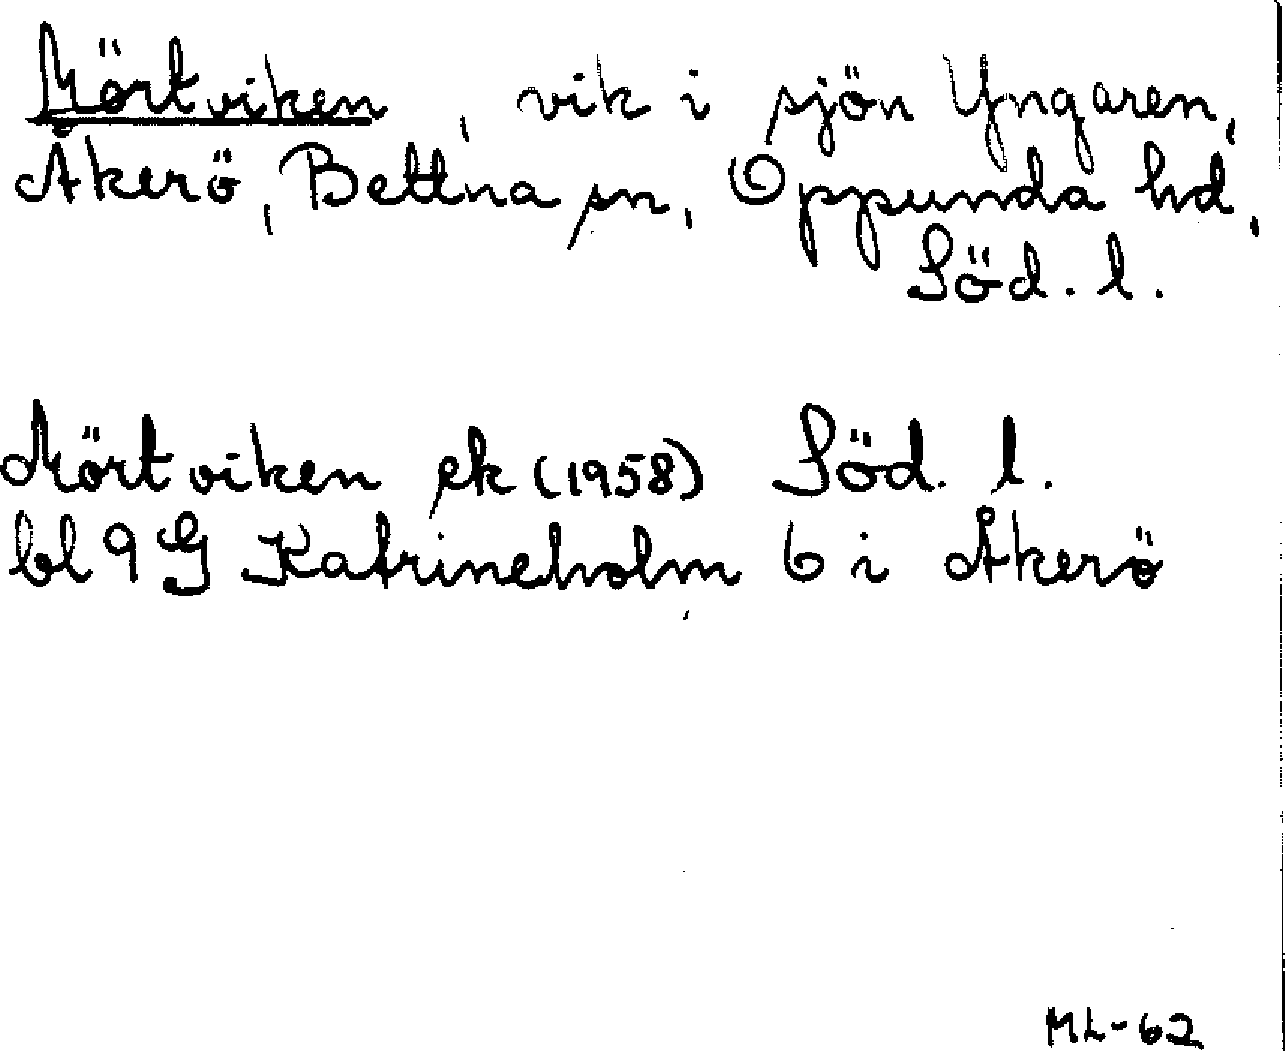 Mörtviken, vik i sjön Yngaren,
Åkerö, Bettna sn, Oppunda hd,
Söd. l.
Mörtviken ek (1958) Söd. l.
bl 9 G Katrineholm 6 i Åkerö
ML-62